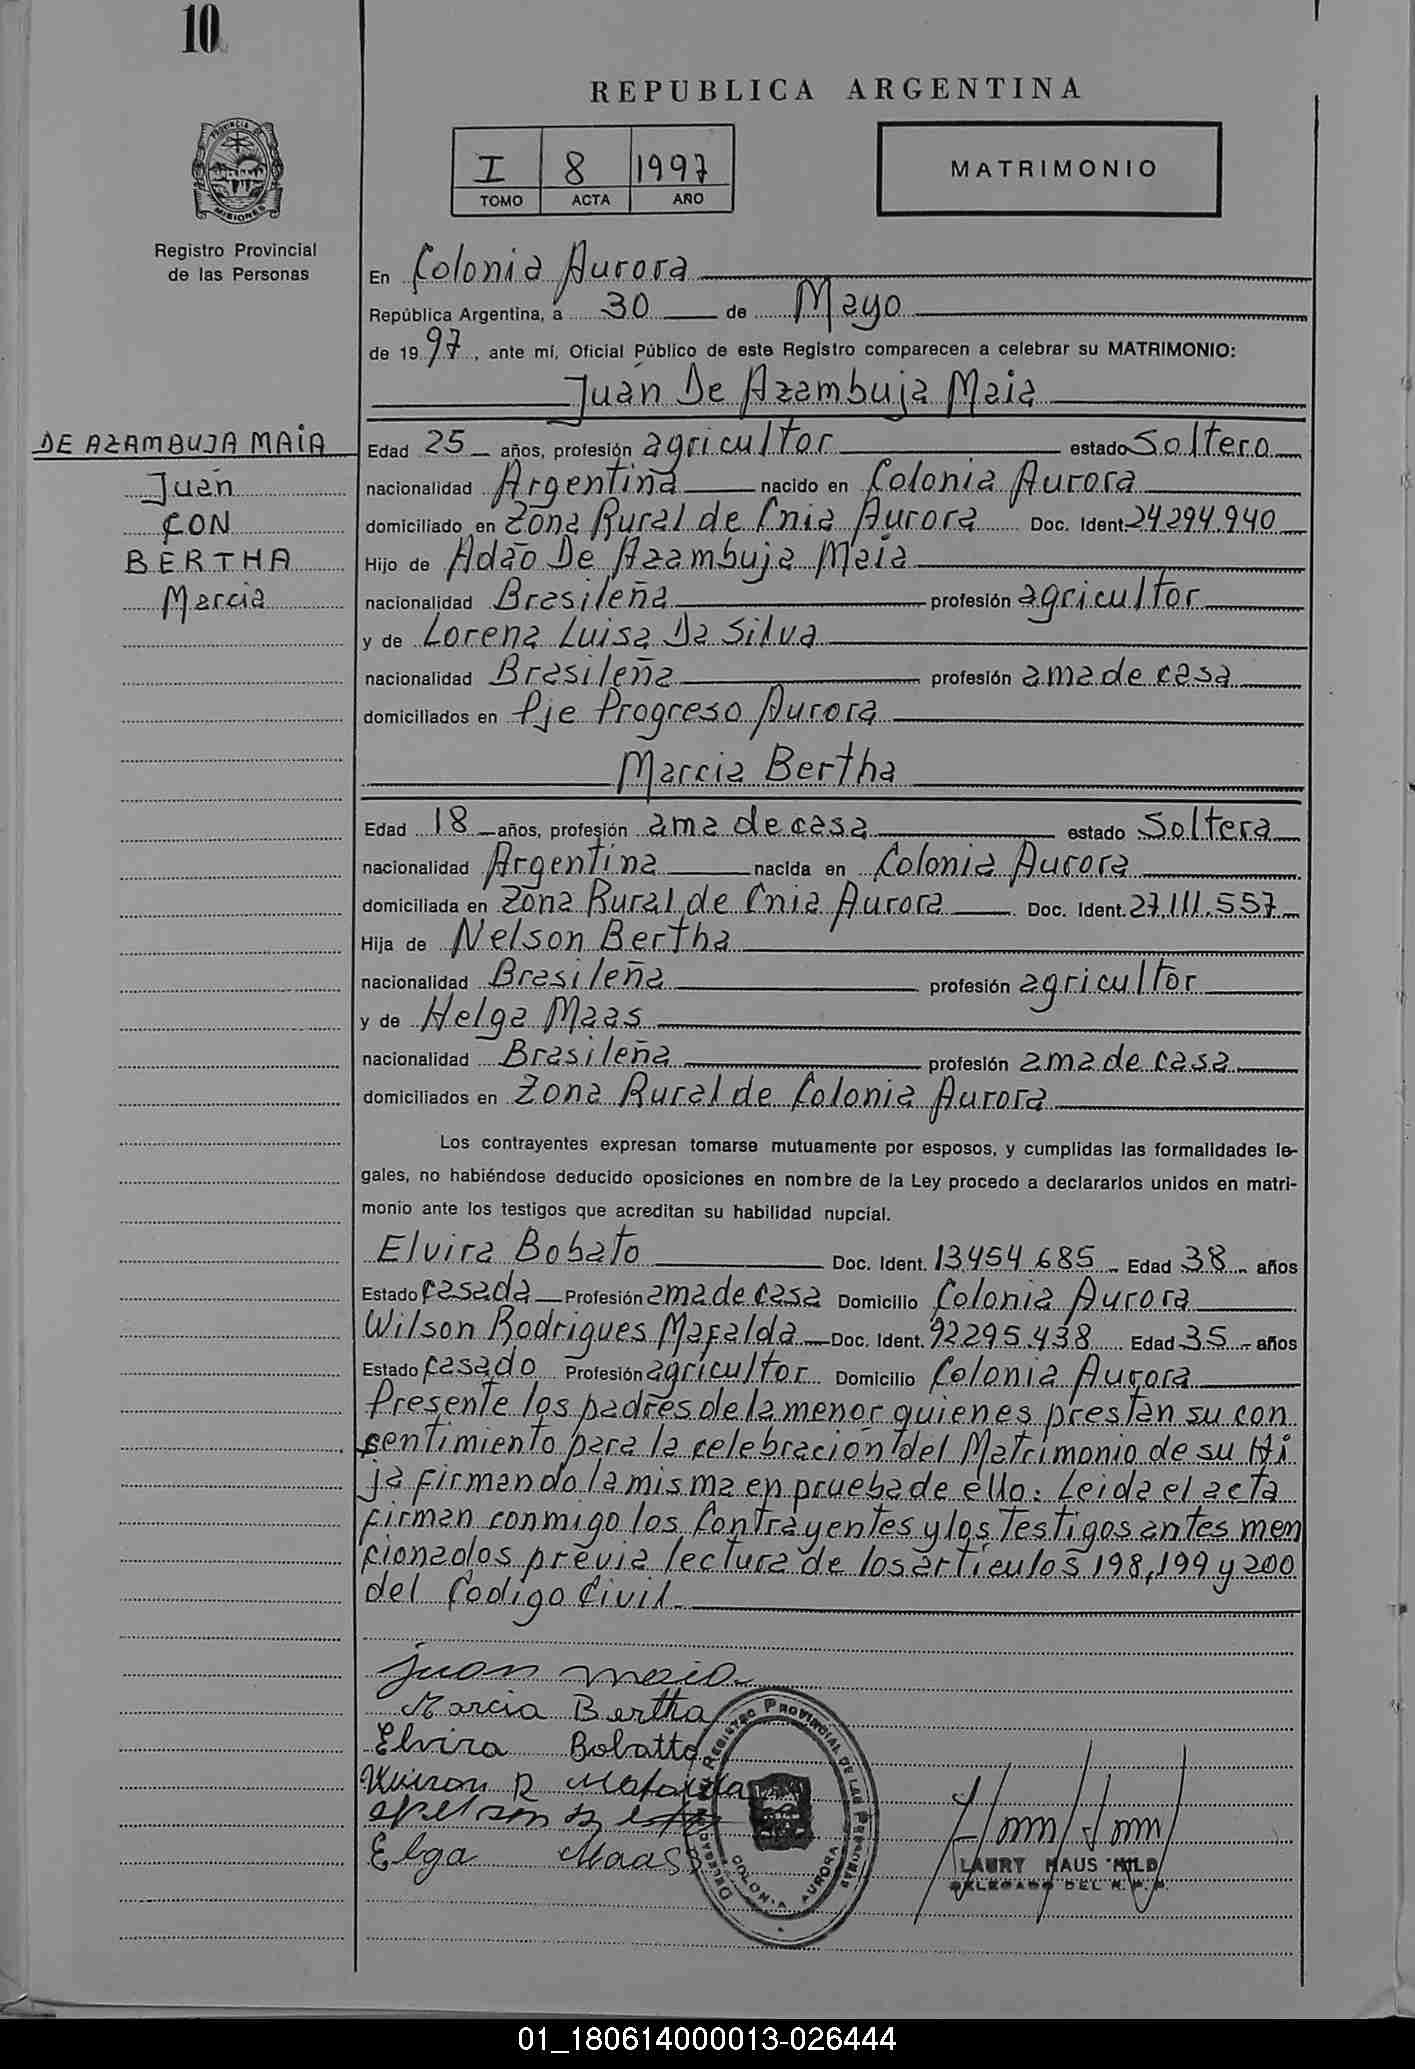 10
REPUBLICA ARGENTINA
PROVINCIA DE
MISIONES
I 8 1997
TOMO ACTA AÑO
MATRIMONIO
Registro Provincial
de las Personas
En Colonia Aurora
República Argentina, a 30 de Mayo
de 1997, ante mí, Oficial Público de este Registro comparecen a celebrar su MATRIMONIO:
Juan De Azambuja Maia
DE AZAMBUJA MAIA
Juan
CON
BERTHA
Marcia
Edad 25 años, profesión agricultor estado Soltero
nacionalidad Argentina nacido en Colonia Aurora
domiciliado en Zona Rural de Cnia Aurora Doc. Ident. 24.294.940
Hijo de Adão De Azambuja Maia
nacionalidad Brasileña profesión agricultor
y de Lorena Luisa Da Silva
nacionalidad Brasileña profesión ama de casa
domiciliados en Pje Progreso Aurora
Marcia Bertha
Edad 18 años, profesión ama de casa estado Soltera
nacionalidad Argentina nacida en Colonia Aurora
domiciliada en Zona Rural de Cnia Aurora Doc. Ident. 27.111.557
Hija de Nelson Bertha
nacionalidad Brasileña profesión agricultor
y de Helga Maas
nacionalidad Brasileña profesión ama de casa
domiciliados en Zona Rural de Colonia Aurora
Los contrayentes expresan tomarse mutuamente por esposos, y cumplidas las formalidades le-
gales, no habiéndose deducido oposiciones en nombre de la Ley procedo a declararlos unidos en matri-
monio ante los testigos que acreditan su habilidad nupcial.
Elvira Bobato Doc. Ident. 13.454.685 Edad 38 años
Estado casada Profesión ama de casa Domicilio Colonia Aurora
Wilson Rodrigues Mafalda Doc. Ident. 92295.438 Edad 35 años
Estado casado Profesión agricultor Domicilio Colonia Aurora
Presente los padres de la menor quienes prestan su con
sentimiento para la celebración del Matrimonio de su Hi
ja firmando la misma en prueba de ello: Leida el acta
firman conmigo los Contrayentes y los Testigos antes men
cionados previa lectura de los artículos 198, 199 y 200
del Codigo Civil
juan maia
Marcia Bertha
Elvira Bobatto
R Mafalda
Elga Maass
REGISTRO PROVINCIAL DE LAS PERSONAS
COLONIA AURORA
LAURY HAUS MILD
DELEGADO DEL R. P. P.
01_180614000013-026444